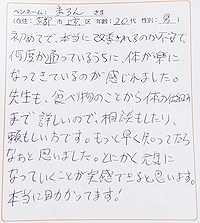 ペンネーム: まるん さま
(在住: 京都 市 上京 区 年齢: 20代 性別: 男)
初めてで、本当に改善されるのか不安で
何度か通っているうちに、体が楽に
なってきているのが感じれました。
先生も、食べ物のことから体の仕組み
まで詳しいので、相談もしたり、
頼もしい方です。もっと早く知ってたら
なぁと思いました。とにかく元気に
なっていくことが実感できると思います。
本当に助かってます!